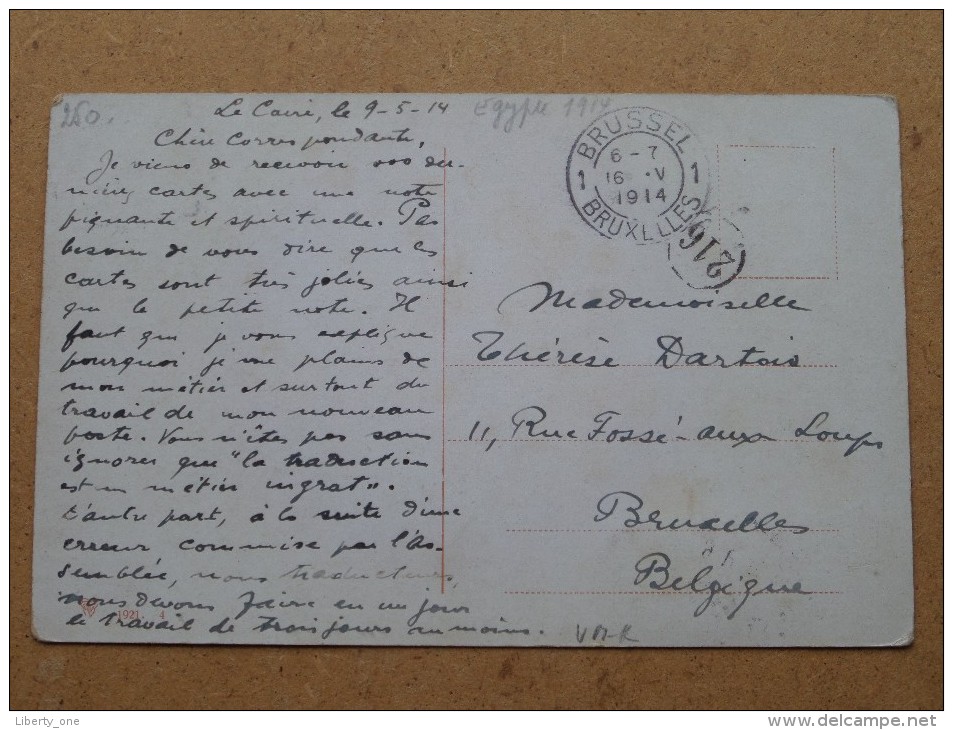 260.
Le Caire, le 9-5-14
Egypte 1914
Chère Correspondante,
Je viens de recevoir vos der-
nières cartes avec une note
piquante et spirituelle. Pas
besoin de vous dire que les
cartes sont très jolies ainsi
que la petite note. Il
faut que je vous explique
pourquoi je me plains de
mon métier et surtout du
travail de mon nouveau
poste. Vous n'êtes pas sans
ignorer que "la traduction
est un métier ingrat".
D'autre part, à la suite d'une
erreur commise par l'As-
semblée, nous traducteurs,
nous devons faire en un jour
le travail de trois jours au moins.
1921. 4
BRUSSEL
1 6-7 1
16 .V
1914
BRUXELLES
216
Mademoiselle
Thérèse Dartois
11, Rue Fossé-aux Loups
Bruxelles
Belgique
VM-R
Liberty_one
www.delcampe.net